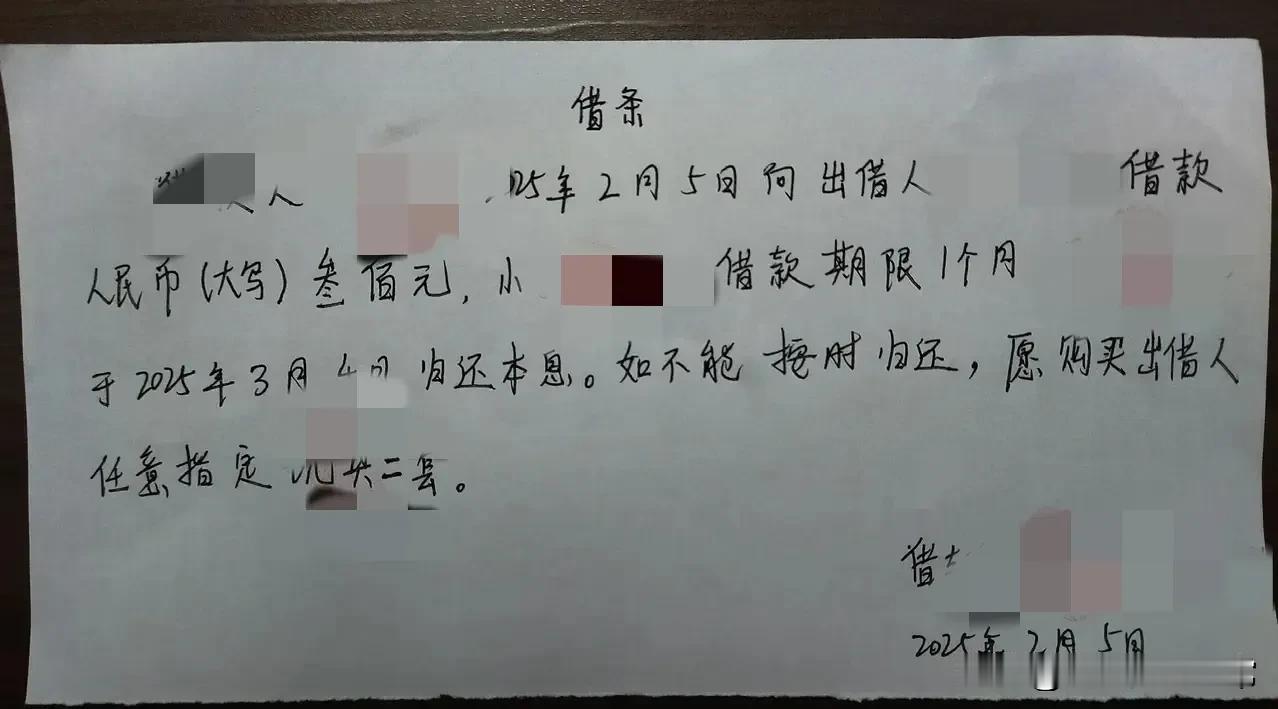 借条
人 25年2月5日向出借人 借款
人民币(大写)叁佰元,小 借款期限1个月
于2025年3月4日归还本息。如不能按时归还,愿购买出借人
任意指定 二
借
2025年2月5日